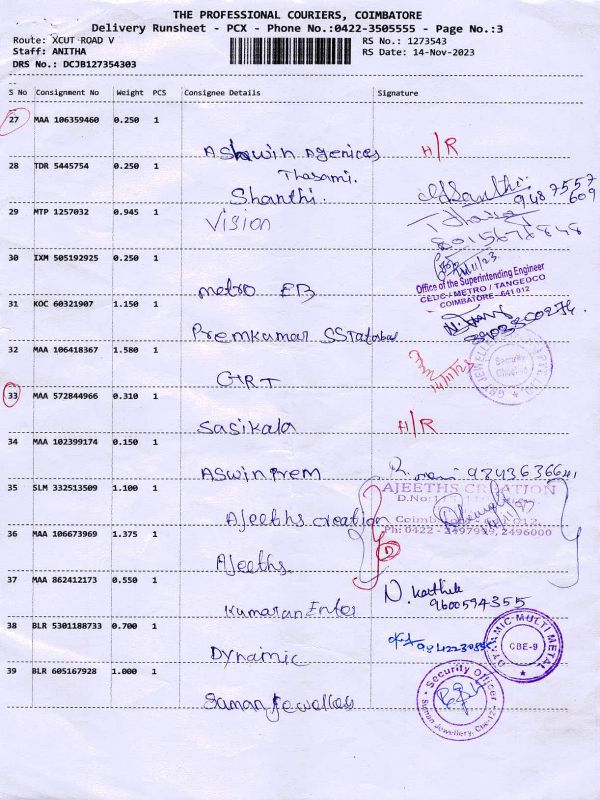 THE PROFESSIONAL COURIERS, COIMBATORE
Delivery Runsheet - PCX - Phone No.:0422-3505555 - Page No.:3
Route: XCUT ROAD V
RS No.: 1273543
Staff: ANITHA
RS Date: 14-Nov-2023
DRS No.: DCJB127354303
S No Consignment No Weight PCS Consignee Details Signature
27 MAA 106359460 0.250 1
Ashwin Agenices H/R
28 TDR 5445754 0.250 1
Thasami.
Shanthi. 9487557
609
29 MTP 1257032 0.945 1
Vision
8015678848
30 IXM 505192925 0.250 1
metro EB
14/11/23
Office of the Superintending Engineer
CEDC / METRO / TANGEDCO
COIMBATORE - 641 012
31 KOC 60321907 1.150 1
Premkumar
32 MAA 106418367 1.580 1
GRT 14/11/23
Security
33 MAA 572844966 0.310 1
Sasikala H/R
34 MAA 102399174 0.150 1
Aswin Prem
35 SLM 332513509 1.100 1
Ajeeths creation
AJEETHS CREATION
D.No:1
Coimbatore 012
Ph: 0422 - 2497999, 2496000
36 MAA 106673969 1.375 1
Ajeeths
37 MAA 862412173 0.550 1
Kumaran Enter
N. Karthik
9600594355
38 BLR 5301188733 0.700 1
Dynamic
DYNAMIC MULTI METAL
CBE-9
39 BLR 605167928 1.000 1
Suman Jewellers
Security Officer
Suman Jewellery, Cbe-12